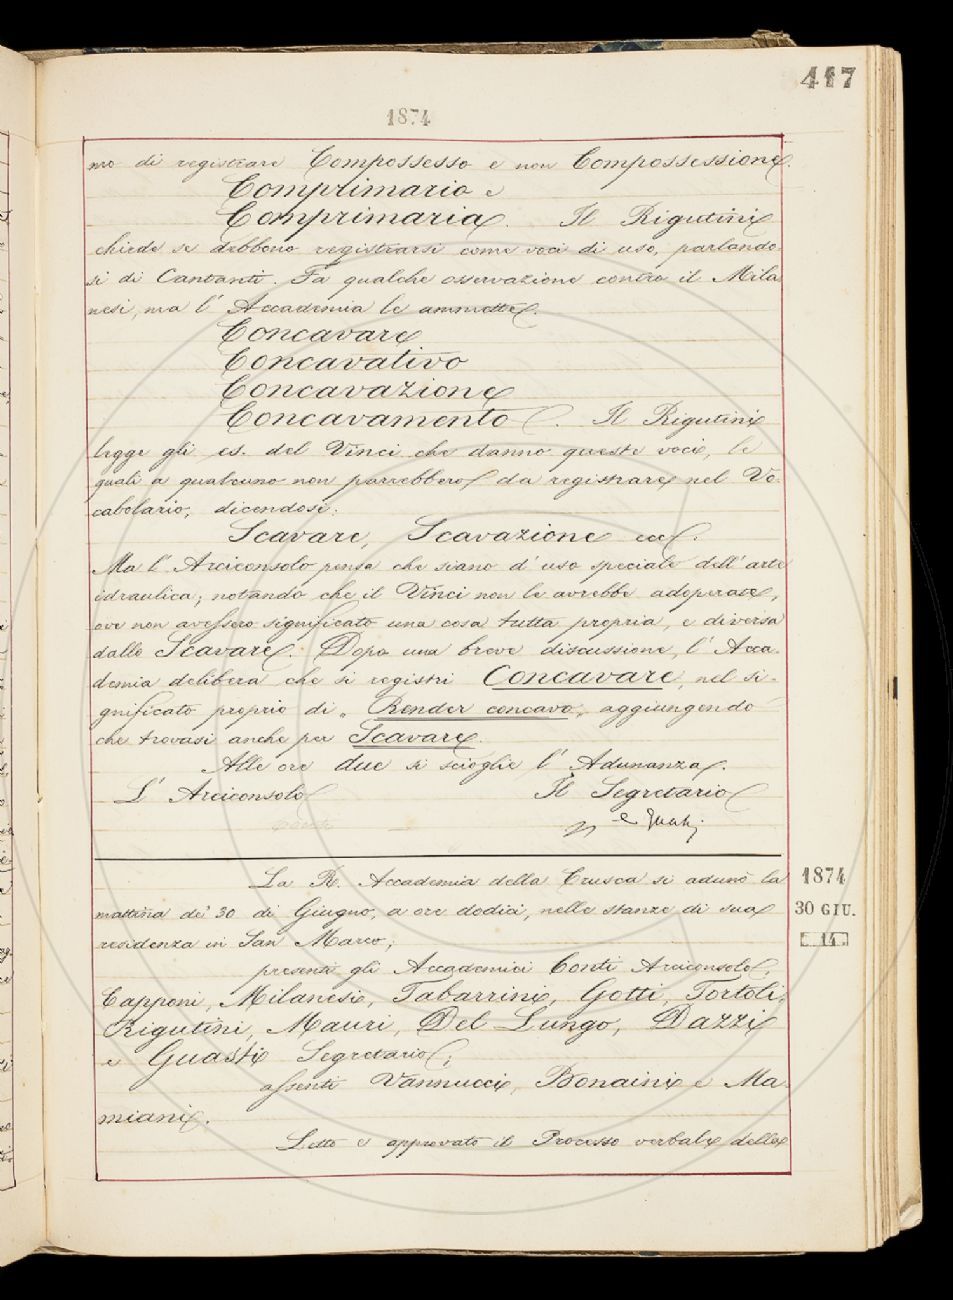 417
1874
mo di registrare Compossesso e non Compossessione.
Comprimario e
Comprimaria. Il Rigutini
chiede se debbono registrarsi come voci di uso, parlando-
si di Cantanti. Fa qualche osservazione contro il Mila
nesi, ma l' Accademia le ammette.
Concavare
Concavativo
Concavazione
Concavamento. Il Rigutini
legge gli es. del Vinci che danno queste voci, le
quali a qualcuno non parrebbero da registrare nel Vo-
cabolario, dicendosi:
Scavare, Scavazione ecc.
Ma l' Arciconsolo pensa che siano d' uso speciale dell' arte
idraulica; notando che il Vinci non le avrebbe adoperate,
ove non avessero significato una cosa tutta propria, e diversa
dallo Scavare. Dopo una breve discussione, l' Acca-
demia delibera che si registri Concavare, nel si-
gnificato proprio di „ Render concavo „ aggiungendo
che trovasi anche per Scavare.
Alle ore due si scioglie l' Adunanza.
L' Arciconsolo Il Segretario
Guasti
La R. Accademia della Crusca si adunò la
mattina de' 30 di Giugno, a ore dodici, nelle stanze di sua
residenza in San Marco;
1874
30 GIU.
14
presenti gli Accademici Conti Arciconsolo,
Capponi, Milanesi, Tabarrini, Gotti, Tortoli,
Rigutini, Mauri, Del Lungo, Dazzi
e Guasti Segretario;
assenti Vannucci, Bonaini e Ma-
miani.
Letto e approvato il Processo verbale della